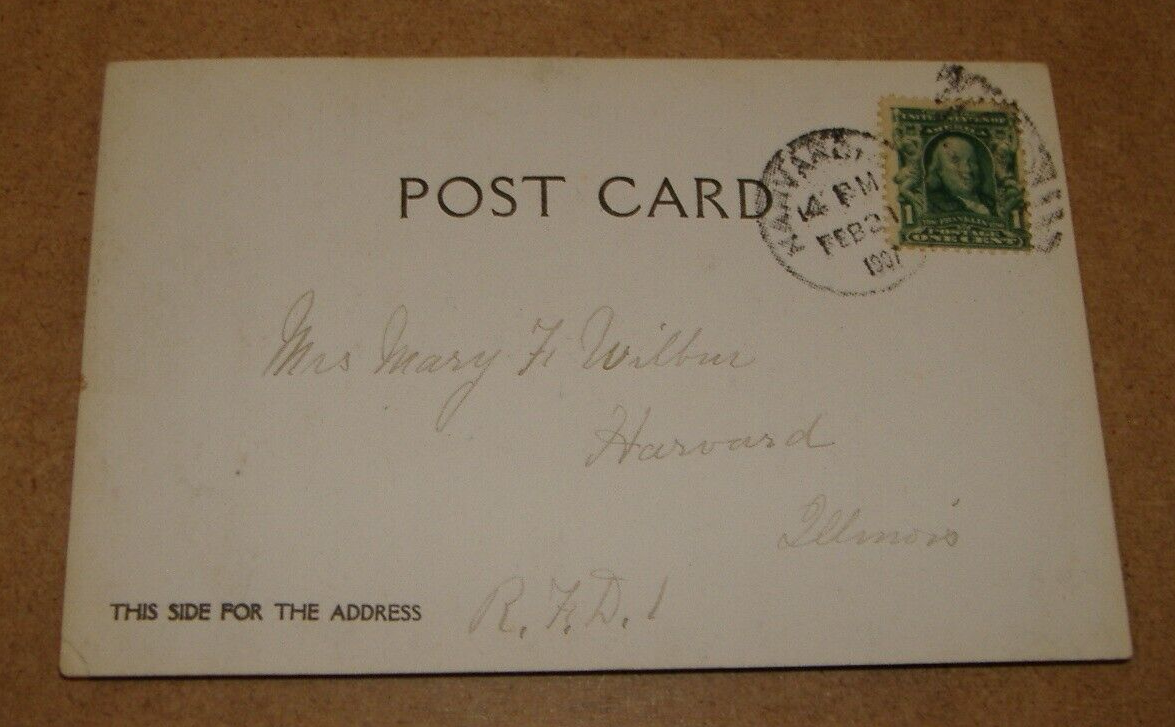 POST CARD
4 PM
FEB 21
1907
UNITED STATES OF
AMERICA
1 1
POSTAGE
ONE CENT
Mrs Mary F. Wilbur
Harvard
Illinois
THIS SIDE FOR THE ADDRESS
R.F.D. 1